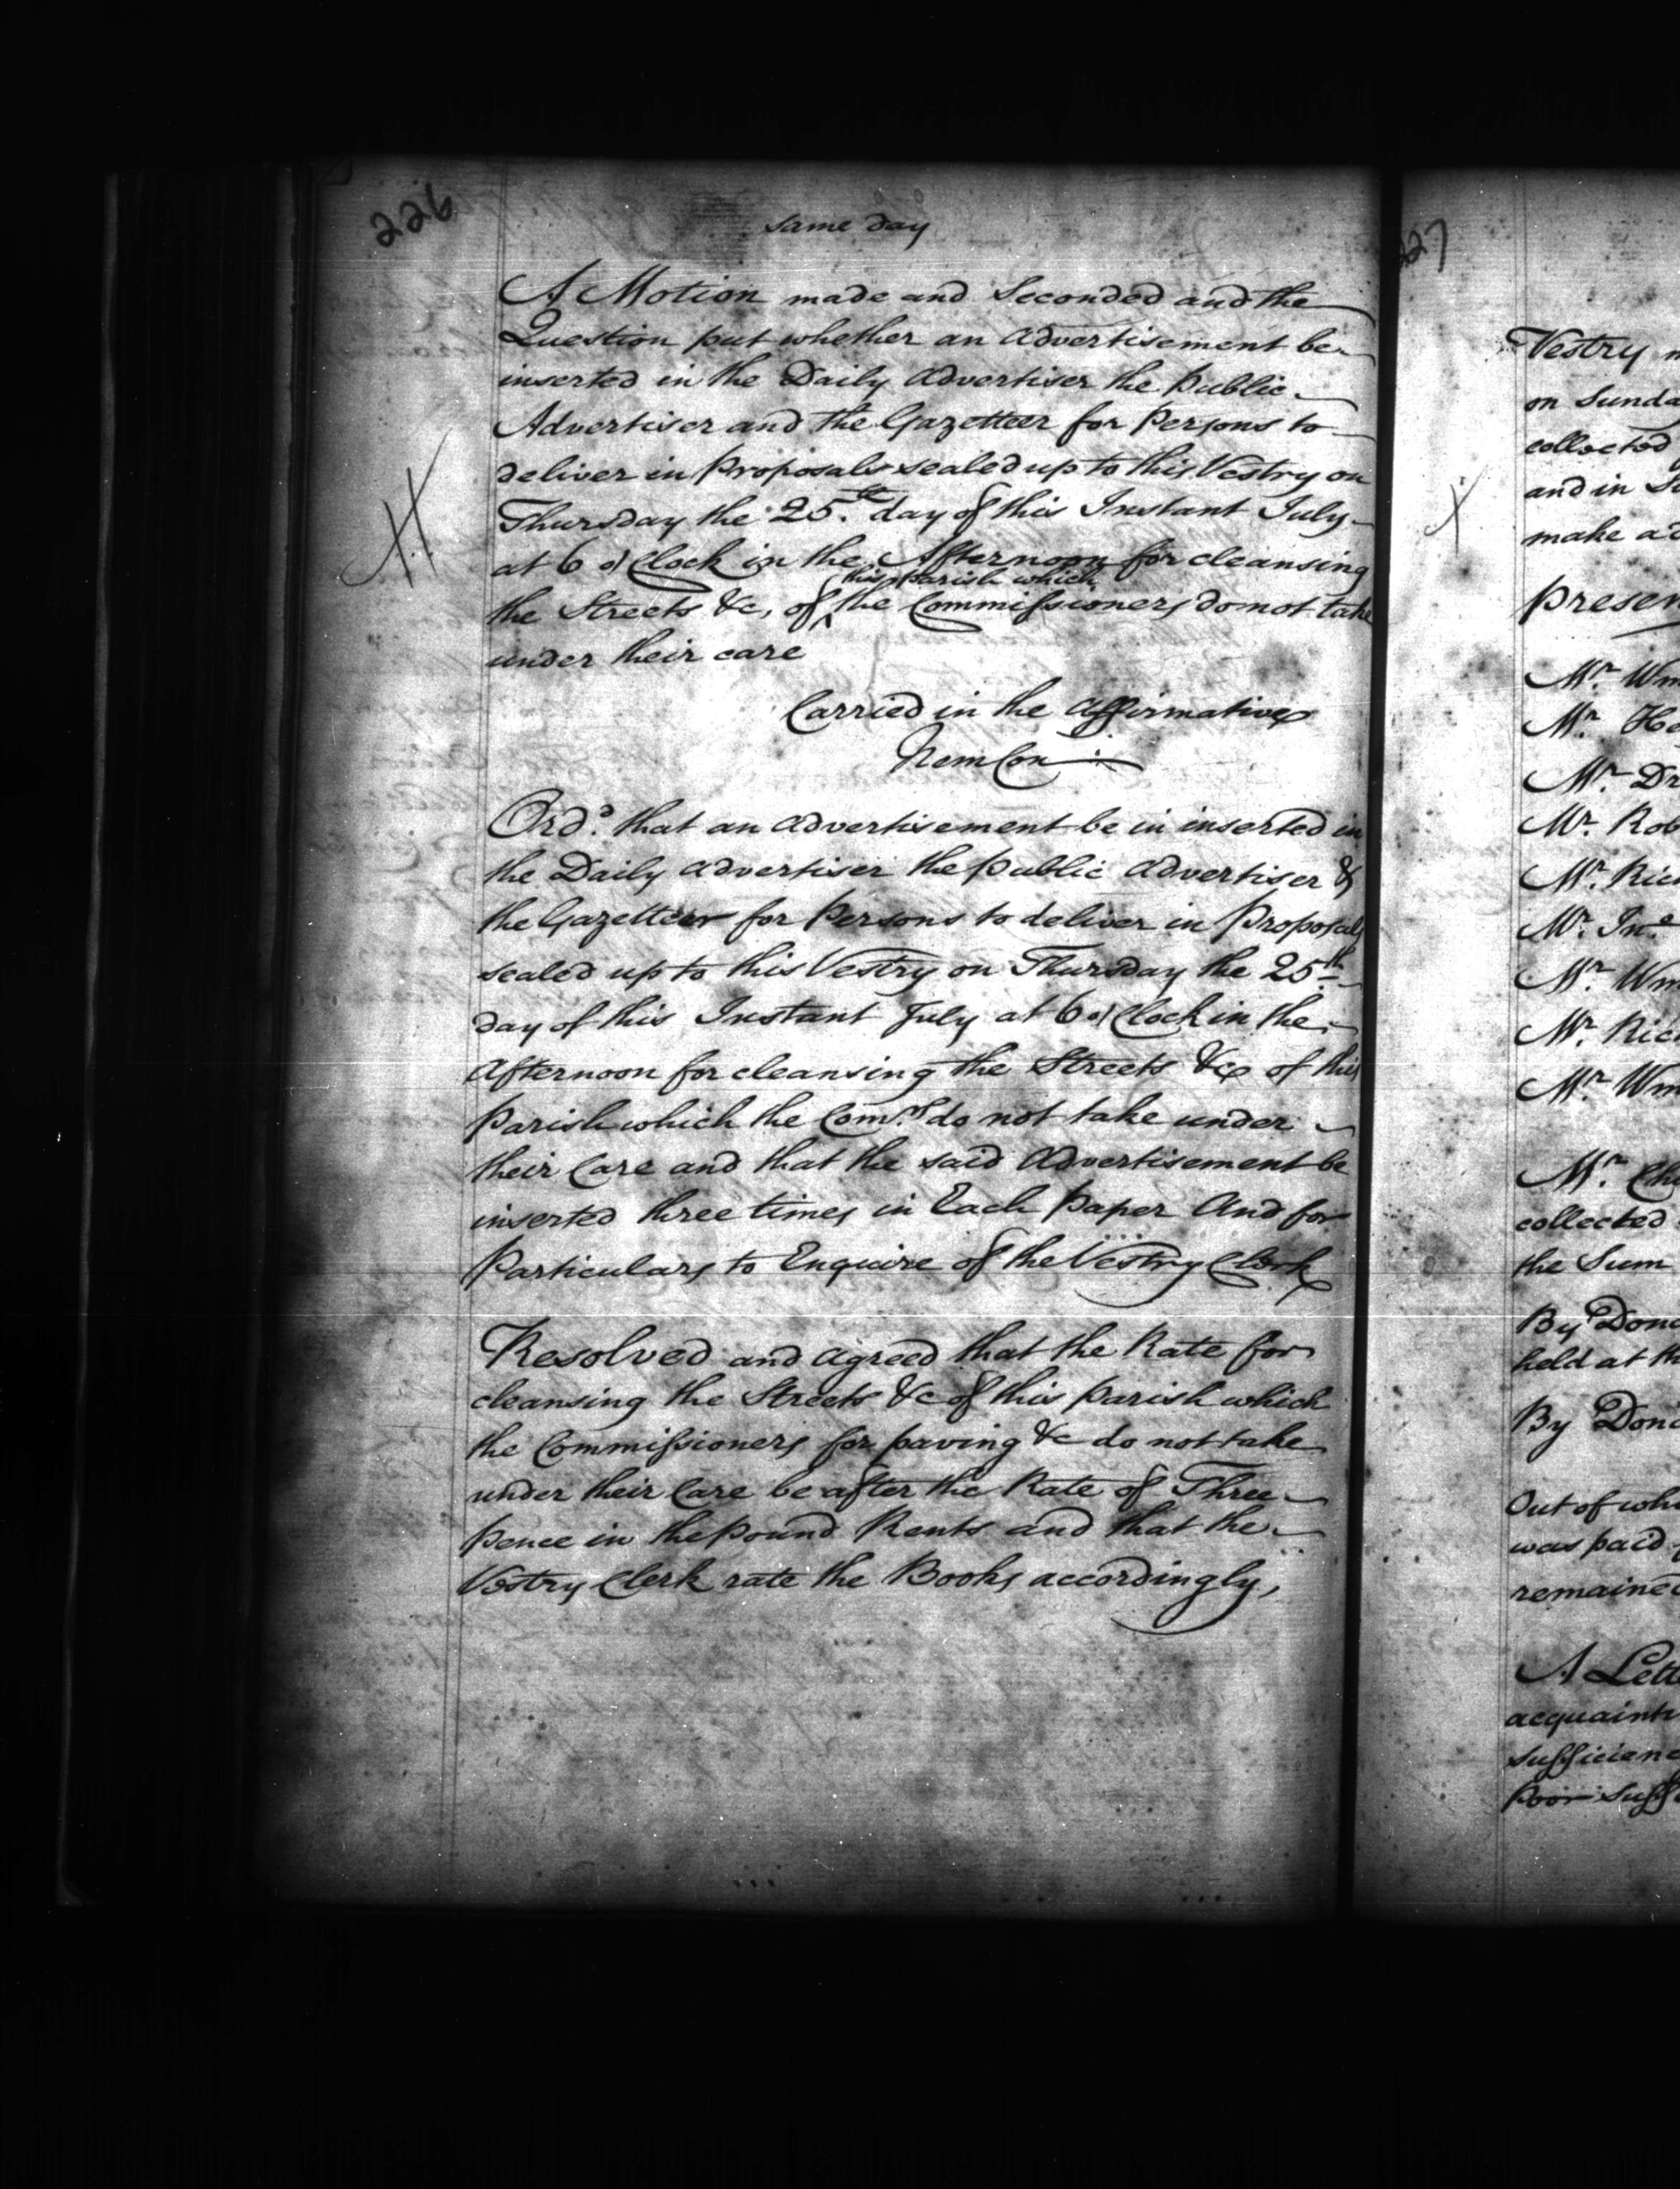 226
same day
A Motion made and Seconded and the
Question put whether an Advertisement be
inserted in the Daily Advertiser the Public
Advertiser and the Gazetteer for Persons to
deliver in Proposals sealed up to this Vestry on
Thursday the 25.th day of this Instant July
at 6 o'Clock in the Afternoon for cleansing
this Parish which
the Streets &c, of ^ the Commissioners do not take
under their care
Carried in the Affirmative
Nem Con
Ord.d that an Advertisement be in inserted in
the Daily Advertiser the Public Advertiser &
the Gazetteer for Persons to deliver in Proposals
sealed up to this Vestry on Thursday the 25th
day of this Instant July at 6 o'Clock in the
Afternoon for cleansing the Streets &c of this
Parish which the Com.rs do not take under
their Care and that the said Advertisement be
inserted three times in Each Paper And for
Particulars to Enquire of the Vestry Clerk
Resolved and agreed that the Rate for
cleansing the Streets &c of this Parish which
the Commissioners for paving &c do not take
under their Care be after the Rate of Three
pence in the Pound Rents and that the
Vestry Clerk rate the Books accordingly,
227
Vestry
on Sunda
collected
and in
make a
Presen
Mr. Wm
Mr. He
Mr. Dr
Mr. Rob
Mr. Ric
Mr. Jno.
Mr. Wm
Mr. Rich
Mr. Wm
Mr. Cha
collected
the Sum
By Dona
held at th
By Dona
Out of whi
was paid
remained
A Lett
acquainti
sufficien
Poor suff